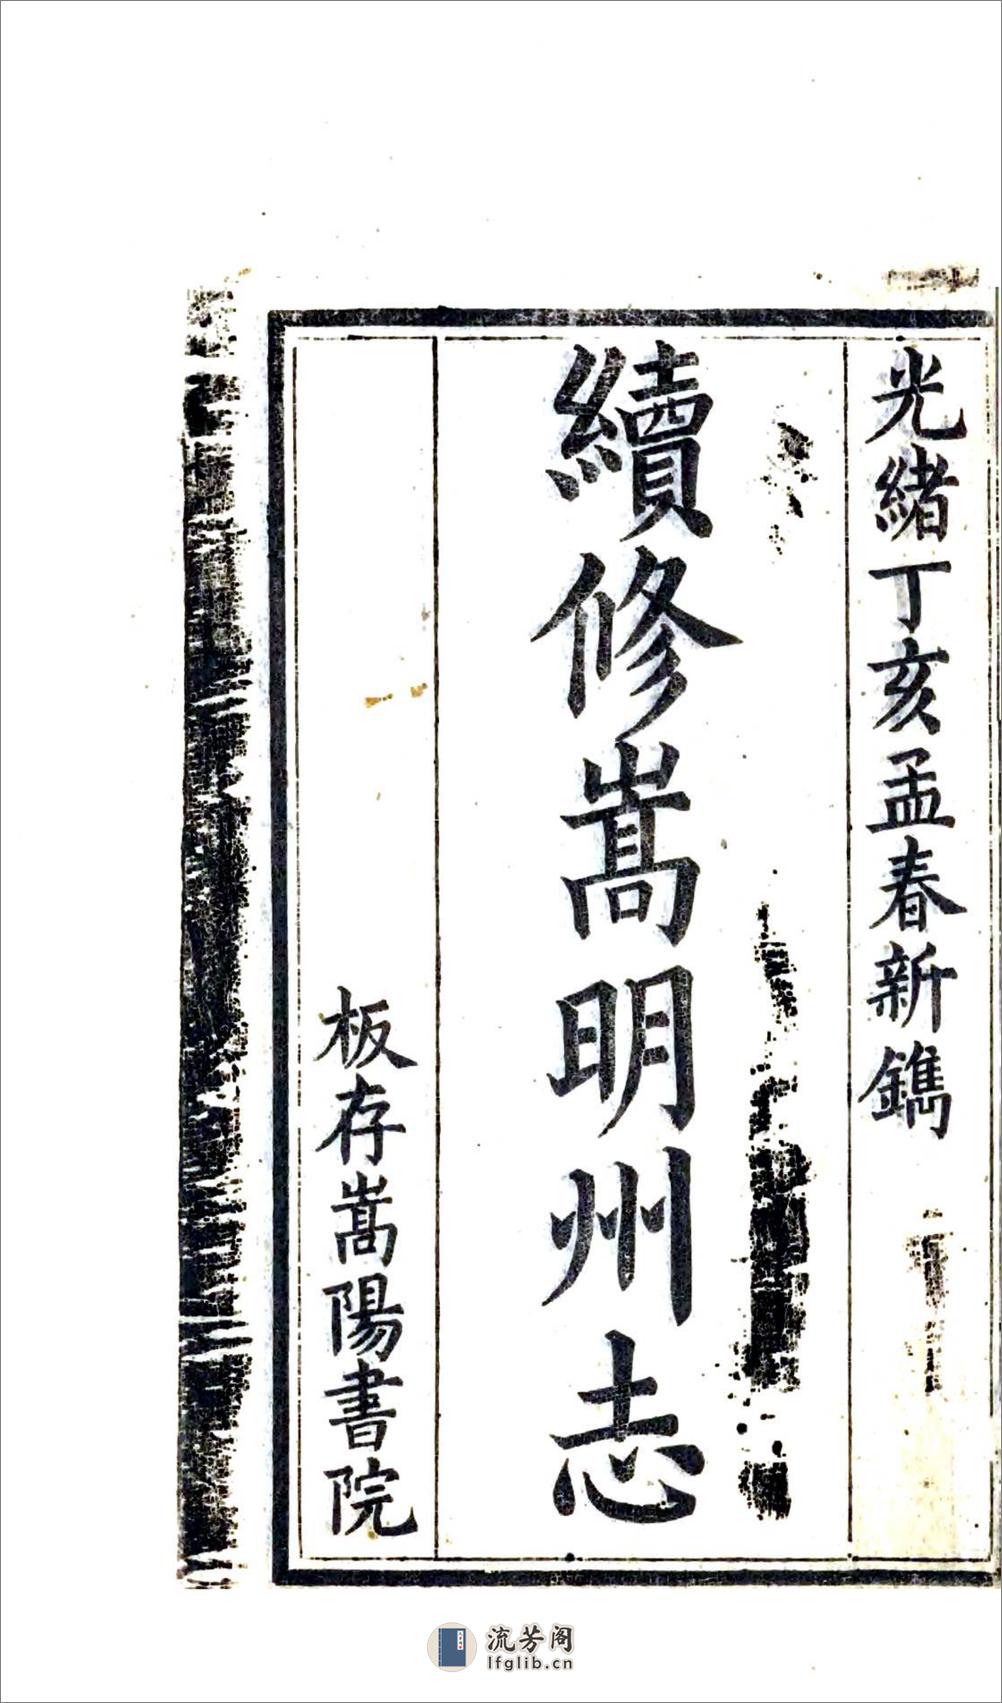 光緒丁亥孟春新鐫
續修嵩明州志
板存嵩陽書院
流芳阁
lfglib.cn